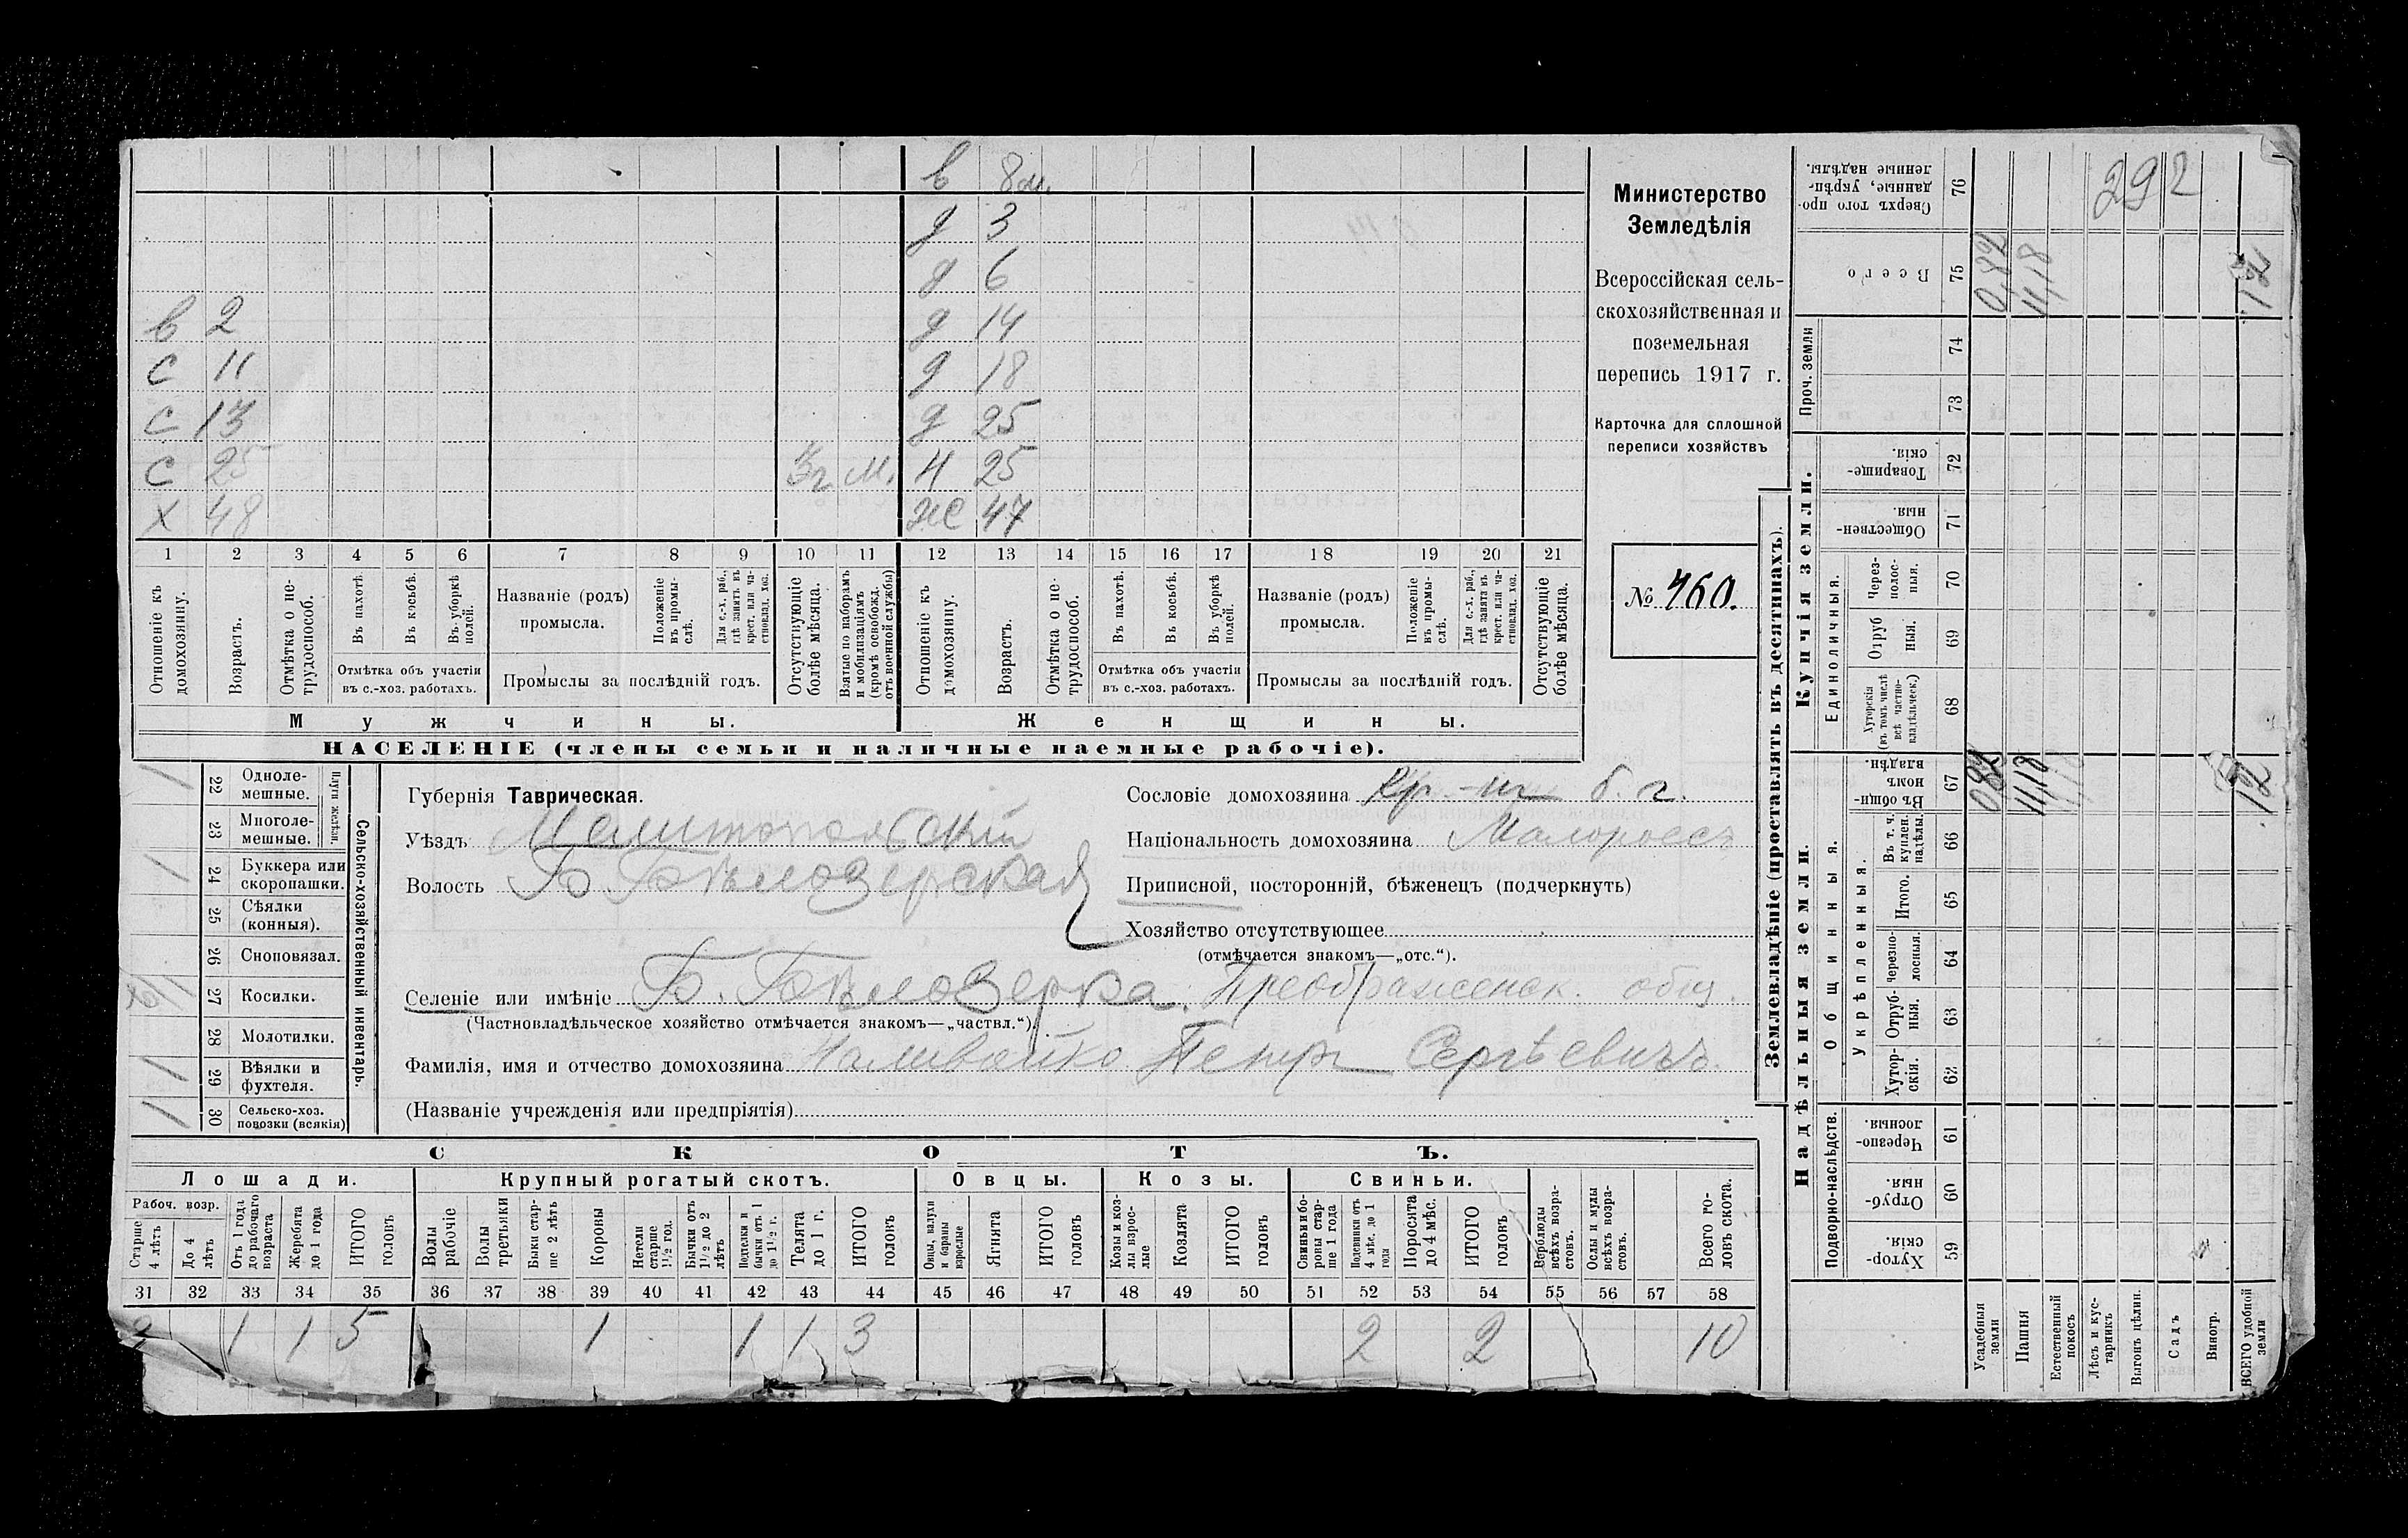 в 8 м.
д 3
д 6
в 2 д 14
с 11 д 18
с 13 д 25
с 25 3 г. м. н 25
х 48 же 47
1 2 3 4 5 6 7 8 9 10 11 12 13 14 15 16 17 18 19 20 21
Отношеніе къ домохозяину.
Возрастъ.
Отмѣтка о не-трудоспособ.
Въ пахотѣ.
Въ косьбѣ.
Въ уборкѣ полей.
Отмѣтка объ участіи
въ с.-хоз. работахъ.
Названіе (родъ)
промысла.
Положеніе въ промы-слѣ.
Для с.-х. раб., гдѣ занятъ въ крест. или ча-стновлад. хоз.
Промыслы за послѣдній годъ.
Отсутствующіе болѣе мѣсяца.
Взятые по наборамъ и мобилизаціямъ (кромѣ освобожд. отъ военной службы)
Отношеніе къ домохозяину.
Возрастъ.
Отмѣтка о не-трудоспособ.
Въ пахотѣ.
Въ косьбѣ.
Въ уборкѣ полей.
Отмѣтка объ участіи
въ с.-хоз. работахъ.
Названіе (родъ)
промысла.
Положеніе въ промы-слѣ.
Для с.-х. раб., гдѣ занята въ крест. или ча-стновлад. хоз.
Промыслы за послѣдній годъ.
Отсутствующіе болѣе мѣсяца.
Мужчины. Женщины.
НАСЕЛЕНІЕ (члены семьи и наличные наемные рабочіе).
Министерство
Земледѣлія
Всероссійская сель-
скохозяйственная и
поземельная
перепись 1917 г.
Карточка для сплошной
переписи хозяйствъ
№ 460.
1 22 Одноле-мешные.
23 Многоле-мешные.
Плуги желѣзн.
1 24 Буккера или скоропашки.
25 Сѣялки (конныя).
26 Сноповязал.
27 Косилки.
28 Молотилки.
1 29 Вѣялки и фухтеля.
1 30 Сельско-хоз. повозки (всякія)
Сельско-хозяйственный инвентарь.
Губернія Таврическая.
Уѣздъ Мелитопольскій
Волость Б. Бѣлозерская
Селеніе или имѣніе Б. Бѣлозерка. Преображенск. общ.
(Частновладѣльческое хозяйство отмѣчается знакомъ—„частвл.“).
Фамилія, имя и отчество домохозяина Наливайко Петръ Сергѣевичъ.
(Названіе учрежденія или предпріятія)
Сословіе домохозяина кр-нъ б. г.
Національность домохозяина Малороссъ
Приписной, посторонній, бѣженецъ (подчеркнуть)
Хозяйство отсутствующее
(отмѣчается знакомъ—„отс.“).
СКОТЪ.
Лошади. Крупный рогатый скотъ. Овцы. Козы. Свиньи.
Рабоч. возр.
Старше 4 лѣтъ
До 4 лѣтъ
Отъ 1 года до рабочаго возраста
Жеребята до 1 года
ИТОГО головъ
Волы рабочіе
Волы третьяки
Быки стар-ше 2 лѣтъ
Коровы
Нетели старше 1½ год.
Бычки отъ 1½ до 2 лѣтъ
Подтелки и бычки отъ 1 до 1½ г.
Телята до 1 г.
ИТОГО головъ
Овцы, валухи и бараны взрослые
Ягнята
ИТОГО головъ
Козы и коз-лы взрос-лые
Козлята
ИТОГО головъ
Свиньи и бо-ровы стар-ше 1 года
Подсвинки отъ 4 мѣс. до 1 года
Поросята до 4 мѣс.
ИТОГО головъ
Верблюды всѣхъ возра-стовъ.
Ослы и мулы всѣхъ возра-стовъ.
Всего го-ловъ скота.
31 32 33 34 35 36 37 38 39 40 41 42 43 44 45 46 47 48 49 50 51 52 53 54 55 56 57 58
2 1 1 5 1 1 1 3 2 2 10
Землевладѣніе (проставлять въ десятинахъ).
Купчія земли.
Надѣльныя земли.
292
Сверхъ того про-данные, укрѣп-ленные надѣлы. 76
Всего 75 0,82 11,18 12
Проч. земли 74
73
Товарище-скія. 72
Обществен-ныя 71
Единоличныя.
Через-полос-ныя. 70
Отруб-ныя. 69
Хуторскія (въ томъ числѣ всѣ частно-владѣльческ.) 68
Общинныя.
Въ общи-номъ владѣн. 67 0,82 11,18 12
Укрѣпленныя.
Въ т. ч. куплен. надѣлы. 66
Итого. 65
Черезпо-лосныя. 64
Отруб-ныя. 63
Хутор-скія. 62
Подворно-наслѣдств.
Черезпо-лосныя. 61
Отруб-ныя. 60
Хутор-скія. 59
Усадебныя земли
Пашня
Естественный покосъ
Лѣсъ и кус-тарникъ
Выгонъ цѣлин.
Садъ
Виногр.
ВСЕГО удобной земли